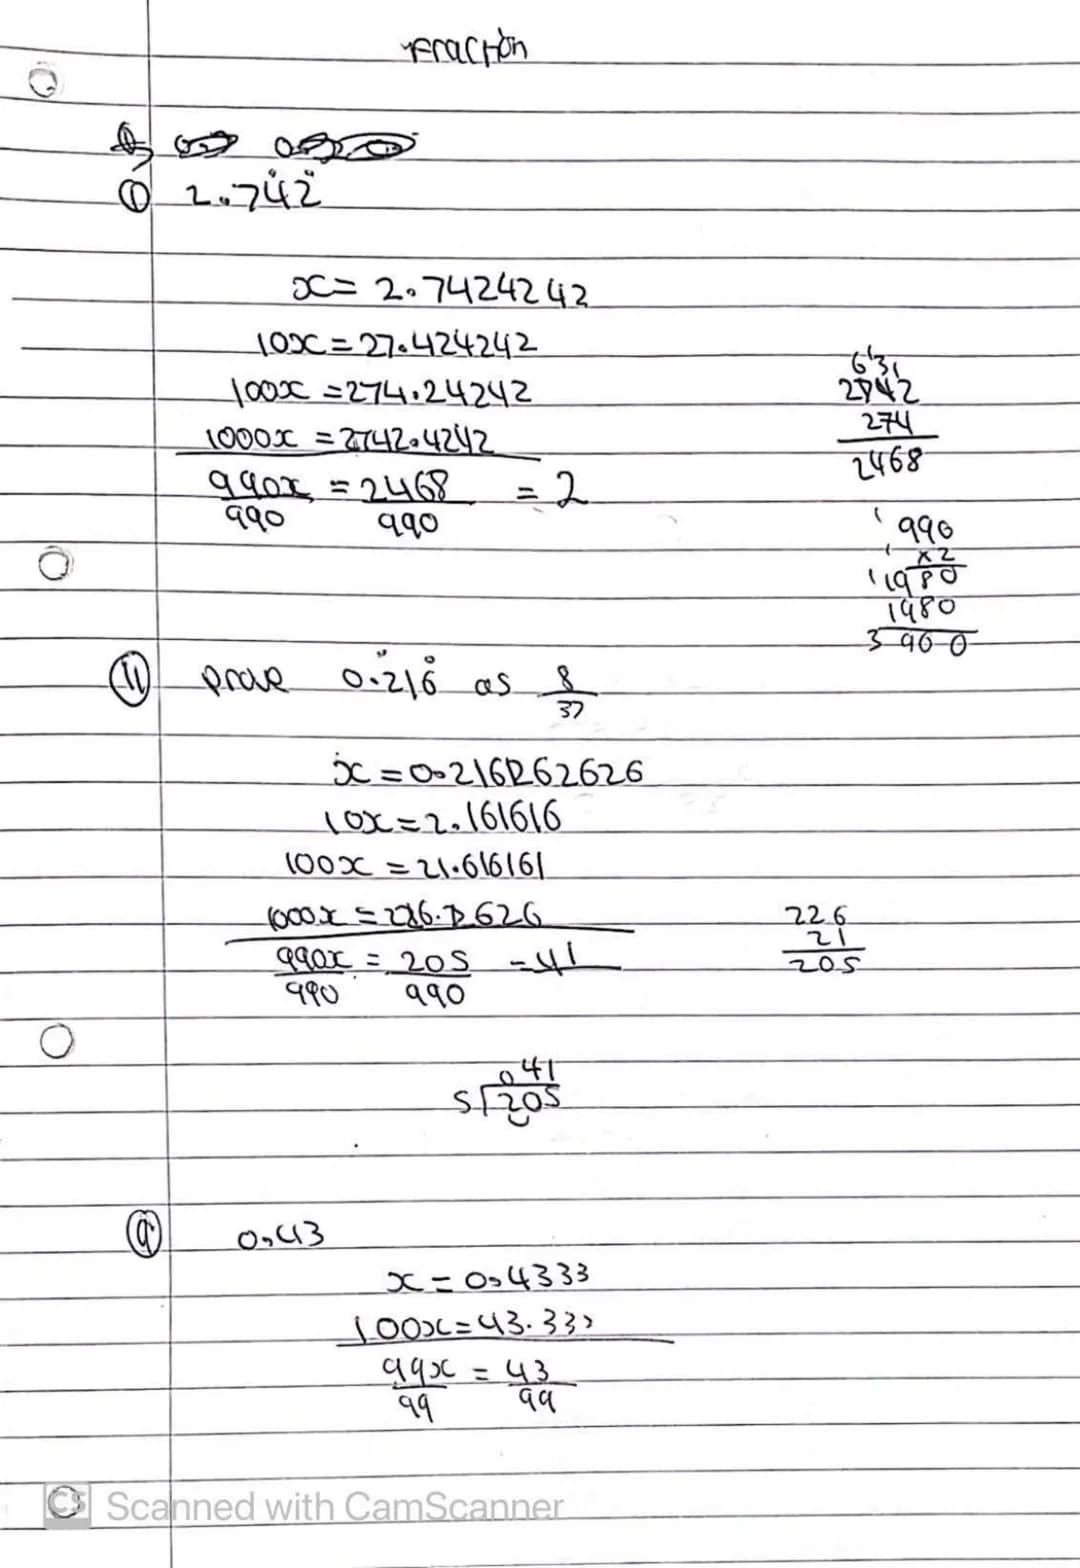 Fraction
① 2.74̇2̇
x = 2.7424242
10x = 27.424242
100x = 274.24242
1000x = 2742.4242
990x = 2468 = 2
990 990
6 13 1
2742
274
2468
990
x2
1980
1980
3960
⑪ prove 0.2̇16̇ as 8
37
x = 0.216262626
10x = 2.161616
100x = 21.616161
1000x = 226.2626
990x = 205 = 41
990 990
226
21
205
041
5 205
0.43
x = 0.4333
100x = 43.333
99x = 43
99 99
CS Scanned with CamScanner